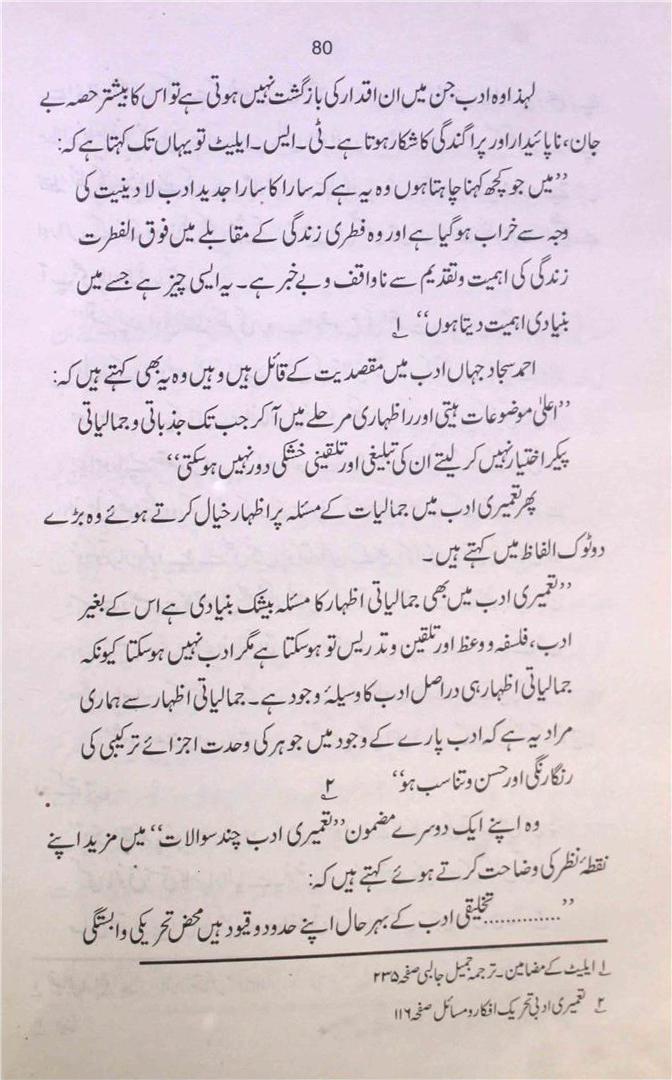 80
لہذا وہ ادب جن میں ان اقدار کی بازگشت نہیں ہوتی ہے تو اس کا بیشتر حصہ بے
جان، ناپائیدار اور پراگندگی کا شکار ہوتا ہے۔ ٹی۔ ایس۔ ایلیٹ تو یہاں تک کہتا ہے کہ:
”میں جو کچھ کہنا چاہتا ہوں وہ یہ ہے کہ سارا کا سارا جدید ادب لادینیت کی
وجہ سے خراب ہو گیا ہے اور وہ فطری زندگی کے مقابلے میں فوق الفطرت
زندگی کی اہمیت و تقدیم سے ناواقف و بے خبر ہے۔ یہ ایسی چیز ہے جسے میں
بنیادی اہمیت دیتا ہوں“ ۱
احمد سجاد جہاں ادب میں مقصدیت کے قائل ہیں وہیں وہ یہ بھی کہتے ہیں کہ:
”اعلیٰ موضوعات ہیتی اور اظہاری مرحلے میں آکر جب تک جذباتی و جمالیاتی
پیکر اختیار نہیں کر لیتے ان کی تبلیغی اور تلقینی خشکی دور نہیں ہو سکتی“
پھر تعمیری ادب میں جمالیات کے مسئلہ پر اظہار خیال کرتے ہوئے وہ بڑے
دوٹوک الفاظ میں کہتے ہیں۔
”تعمیری ادب میں بھی جمالیاتی اظہار کا مسئلہ بیشک بنیادی ہے اس کے بغیر
ادب، فلسفہ و وعظ اور تلقین و تدریس تو ہو سکتا ہے مگر ادب نہیں ہو سکتا کیونکہ
جمالیاتی اظہار ہی دراصل ادب کا وسیلۂ وجود ہے۔ جمالیاتی اظہار سے ہماری
مراد یہ ہے کہ ادب پارے کے وجود میں جوہر کی وحدت اجزائے ترکیبی کی
رنگارنگی اور حسن و تناسب ہو“ ۲
وہ اپنے ایک دوسرے مضمون ”تعمیری ادب چند سوالات“ میں مزید اپنے
نقطۂ نظر کی وضاحت کرتے ہوئے کہتے ہیں کہ:
”.............تخلیقی ادب کے بہر حال اپنے حدود و قیود ہیں محض تحریکی وابستگی
۱ ایلیٹ کے مضامین۔ ترجمہ جمیل جالبی صفحہ ۲۳۵
۲ تعمیری ادبی تحریک افکار و مسائل صفحہ ۱۱۶